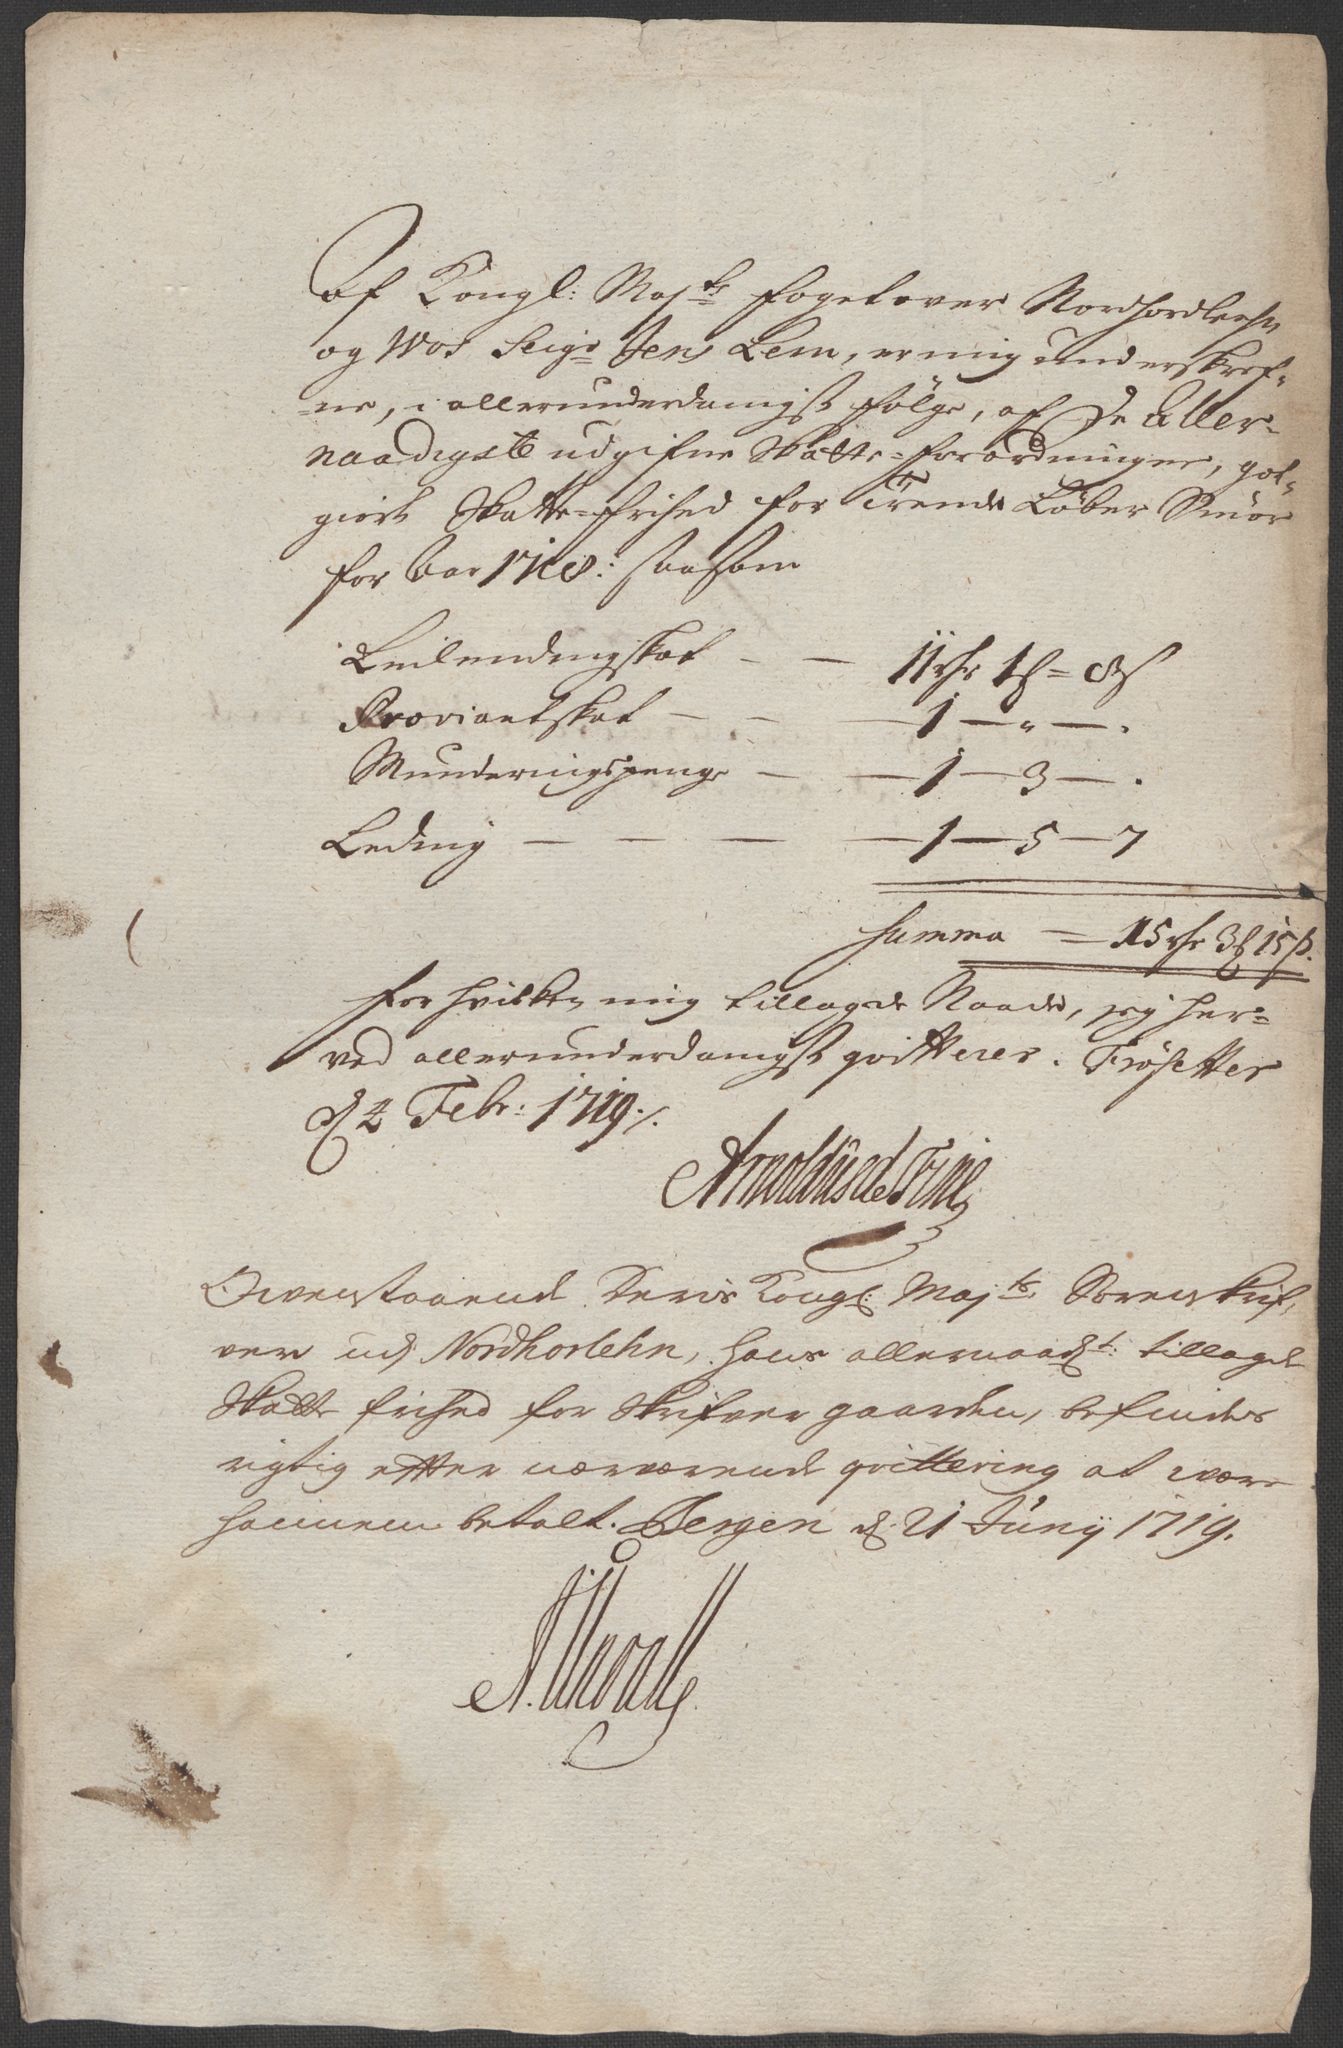 Af Kongl: Maj.ts foget over Nordhordlehn
og Wos Seigr Jens Lem, er mig underskref-
ne, i allerunderdanigst følge, af De Aller-
naadigste udgifne Skatte-forordninger, got-
giort Skatte-frihed for Trende Løber Smør
for Aar 1718: saasom
Leilendingskat — — 11 rdr 1 ℳ - 8 ß
Proviantskat — — — 1 — „ — .
Munderingspenge — — 1 — 3 — .
Leding — — — — 1 — 5 — 7
Summa = 15 rdr 3 ℳ 15 ß.
For hvilken mig tillagde Naade, jeg her-
ved allerunderdanigst qvitterer. Frøsetter
d 4 Febr: 1719./.
Arnoldus de Fine
Ovenstaaende Deris Kongl: Maj.ts Sorenskrif-
ver udj Nordhorlehn, hans allernaadst: tillagde
Skatte frihed for Skrifver gaarden, befindes
rigtig efter nærværende qvittering at være
hannem betalt. Bergen d. 21 Junij 1719.